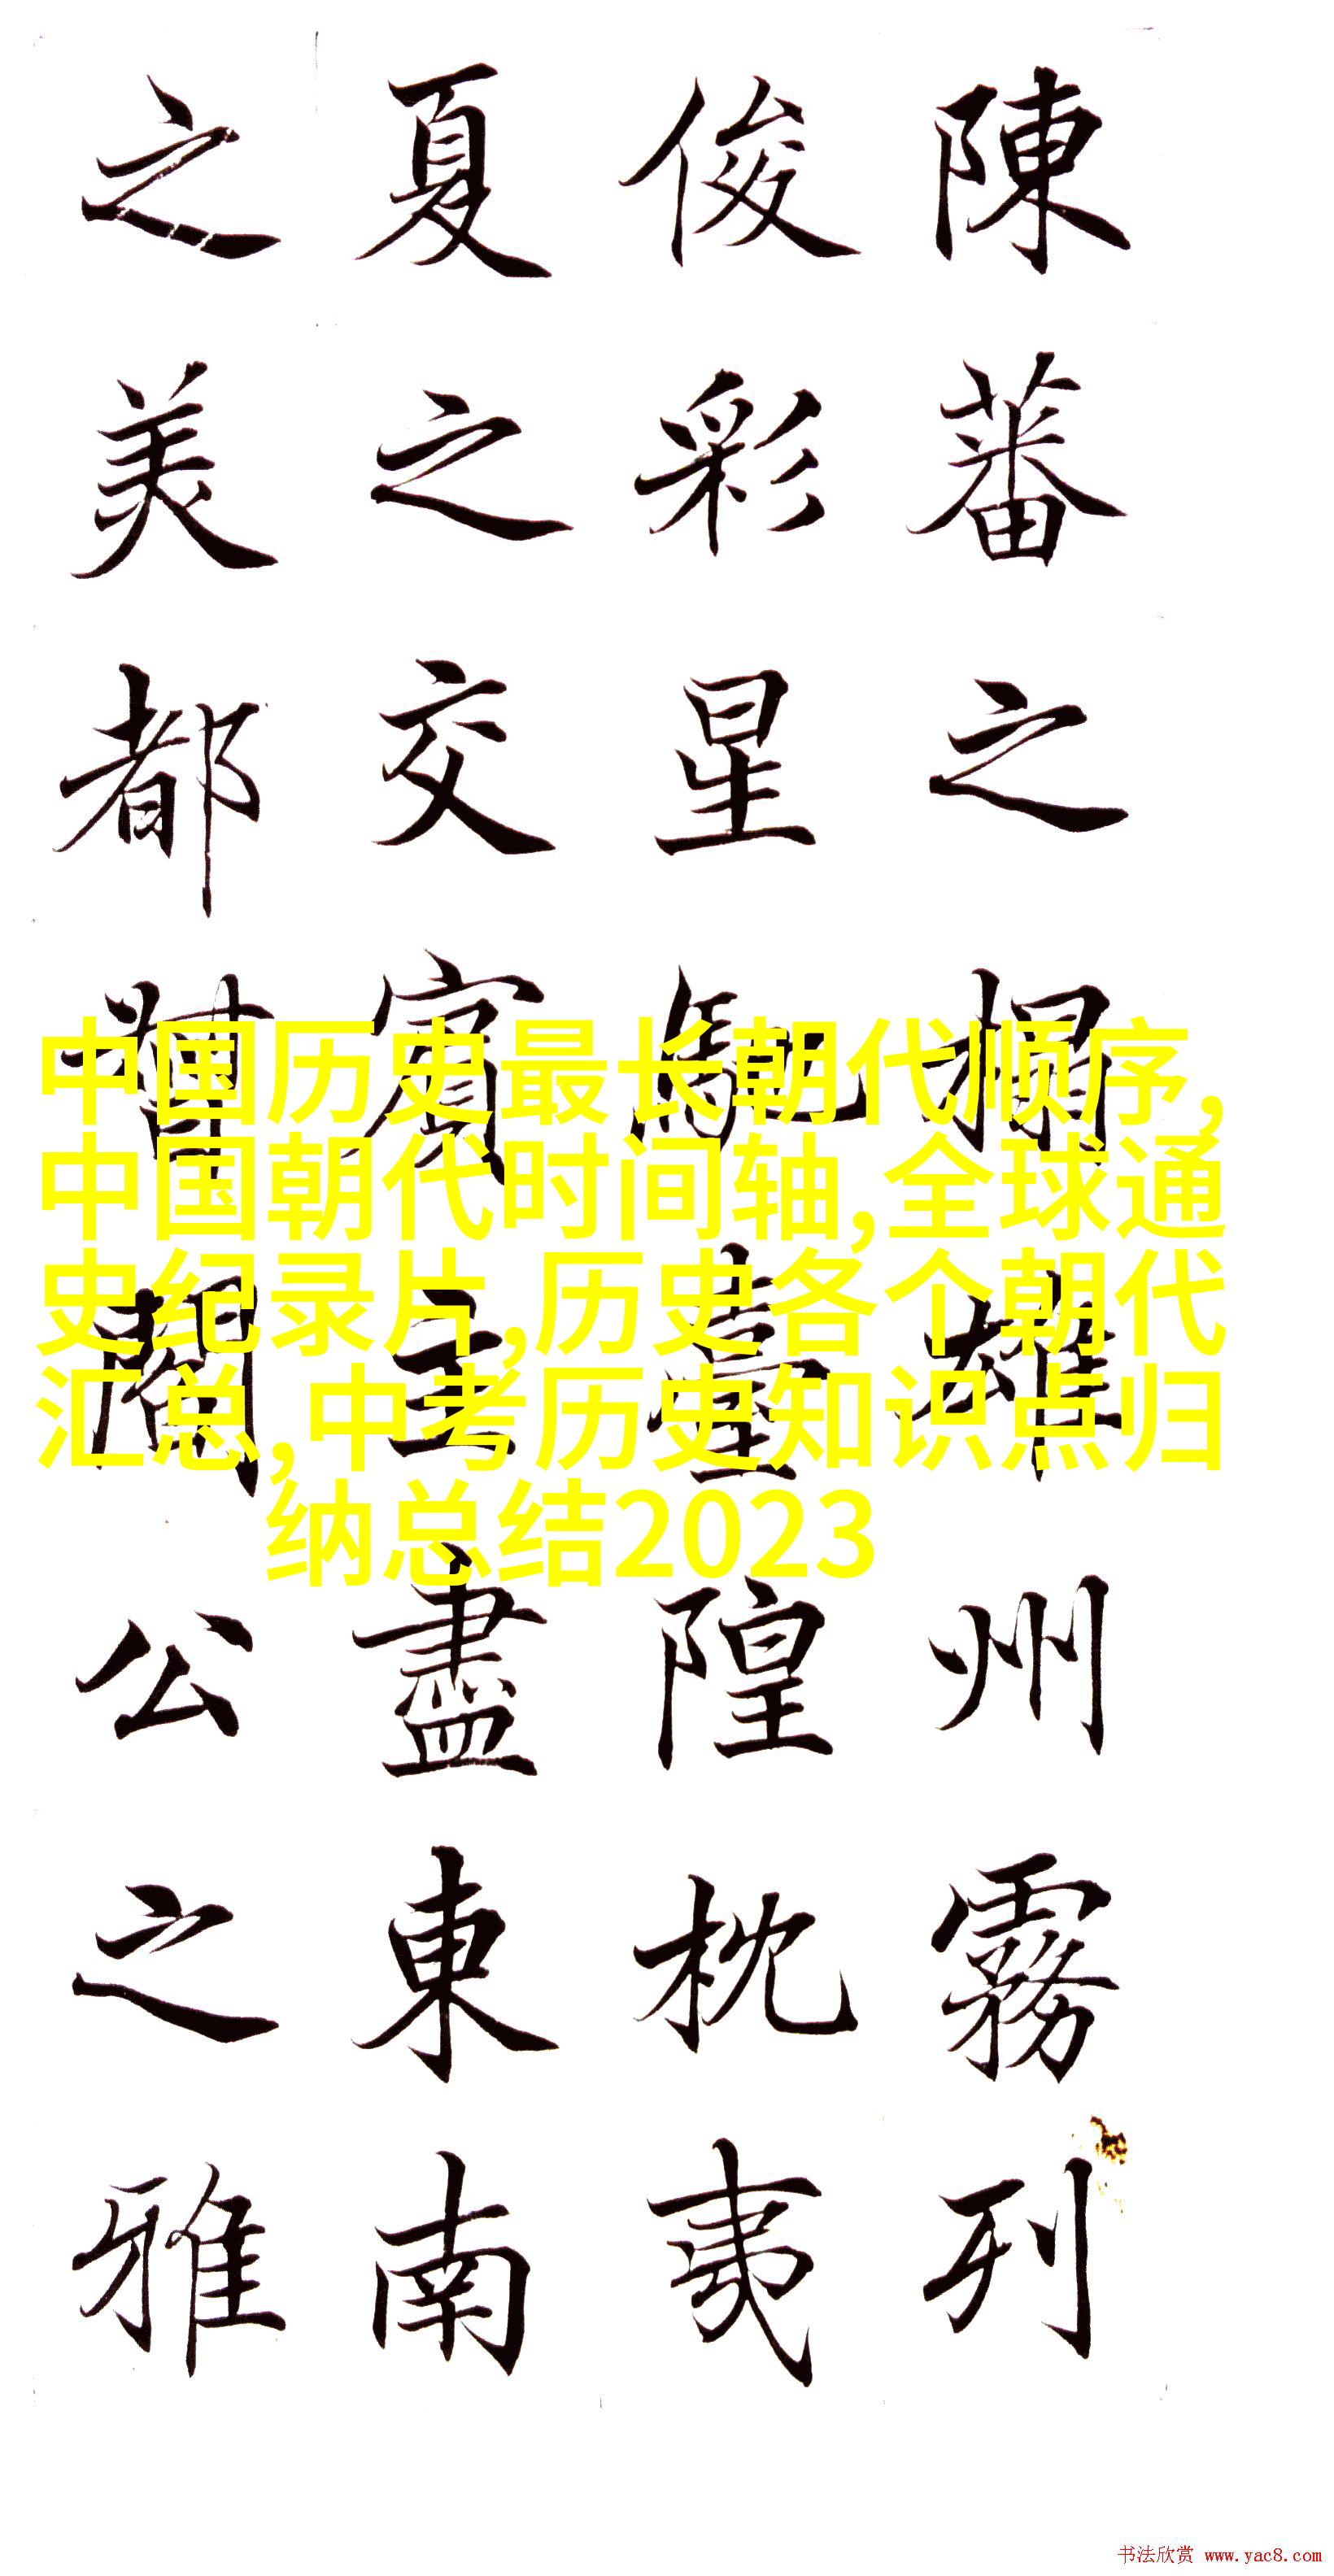 陳蕃之榻雄州霧列
俊彩星馳臺隍枕夷
夏之交賓主盡東南
之美都督閻公之雅
中国历史最长朝代顺序,
中国朝代时间轴,全球通
史纪录片,历史各个朝代
汇总,中考历史知识点归
纳总结2023
书法欣赏 www.yac8.com